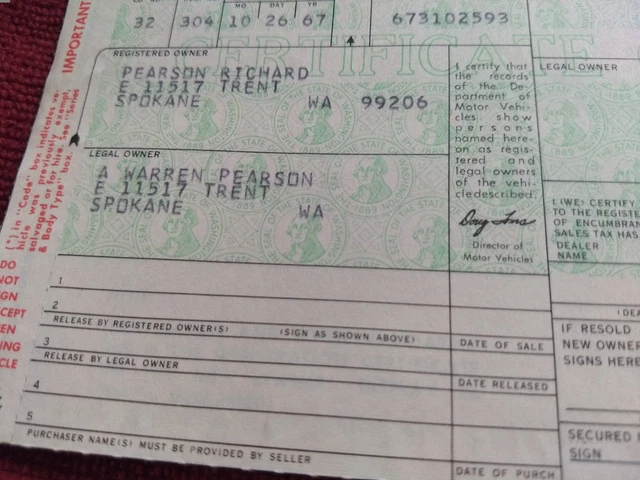 CO. NO.
MO. DAY YEAR
32 304 10 26 67 673102593
CERTIFICATE
IMPORTANT
REGISTERED OWNER
PEARSON RICHARD
E 11517 TRENT
SPOKANE WA 99206
LEGAL OWNER
A WARREN PEARSON
E 11517 TRENT
SPOKANE WA
I certify that
the records
of the De-
partment of
Motor Vehi-
cles show
persons
named here-
on as regis-
tered and
legal owners
of the vehi-
cle described.
Director of
Motor Vehicles
LEGAL OWNER
I, (WE) CERTIFY
TO THE REGISTE
OF ENCUMBRAN
SALES TAX HAS
DEALER
NAME
(DEA
IF RESOLD
NEW OWNER
SIGNS HERE
SECURED
SIGN
1
2
RELEASE BY REGISTERED OWNER(S) (SIGN AS SHOWN ABOVE) DATE OF SALE
3
RELEASE BY LEGAL OWNER DATE RELEASED
4
5
PURCHASER NAME(S) MUST BE PROVIDED BY SELLER DATE OF PURCH
(*) in "Code" box indicates ve-
hicle was previously exempt,
salvaged or for hire. See "Series
& Body Type" box.
DO
NOT
GN
CEPT
EN
ING
CLE